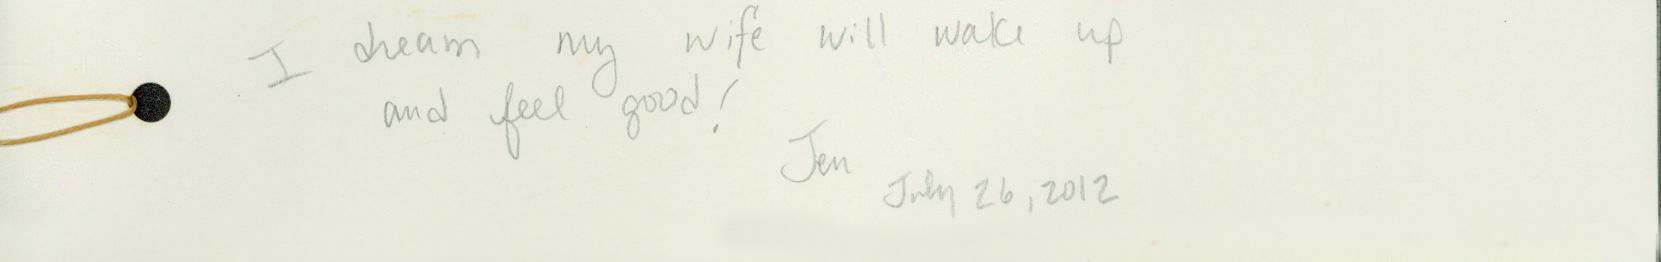 I dream my wife will wake up
and feel good!
Jen
July 26, 2012